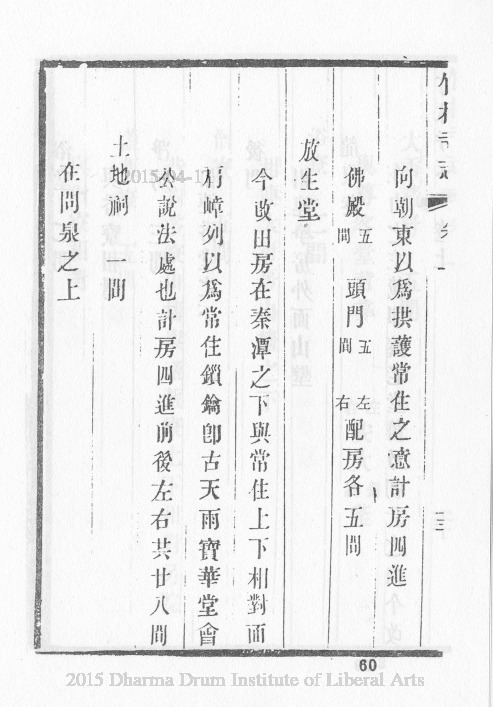 向朝東以為拱護常住之意計房四進
佛殿五間 頭門五間 左右配房各五間
放生堂
今改田房在秦潭之下與常住上下相對面
有嶂列以為常住鎖鑰卽古天雨寶華堂會
公說法處也計房四進前後左右共廿八間
土地祠 一間
在問泉之上
十三
60
2015-04-1
2015 Dharma Drum Institute of Liberal Arts